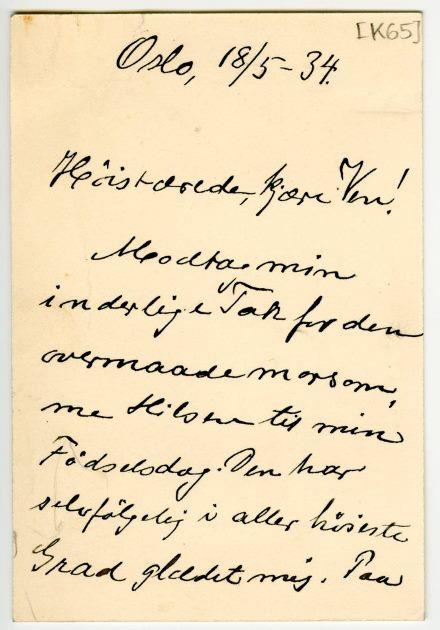 [K65]
Oslo, 18/5-34.
Höistærede, kjære Ven!
Modtag min
inderlige Tak for den
overmaade morsom,
me Hilsen til min
Födselsdag. Den har
selvfölgelig i aller höieste
Grad glædet mig. Paa